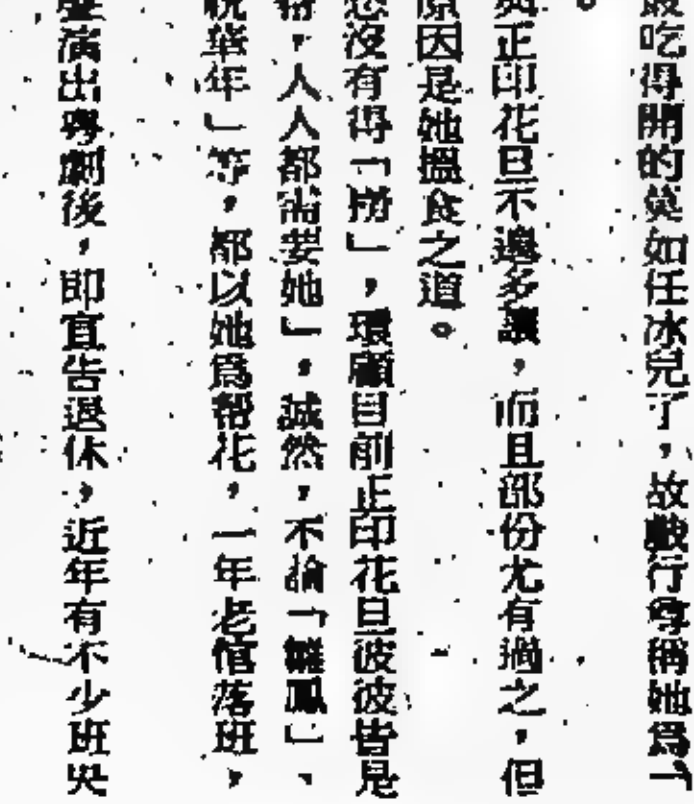 吃得開的莫如任冰兒了，故戲行尊稱她爲「
。
正印花旦不遑多讓，而且部份尤有過之，但
原因是她搵食之道。
沒有得「撈」，環顧目前正印花旦彼彼皆是
，人人都需要她」，誠然，不論「雛鳳」、
華年」等，都以她爲幫花，一年老倌落班，
演出粵劇後，即宣告退休，近年有不少班